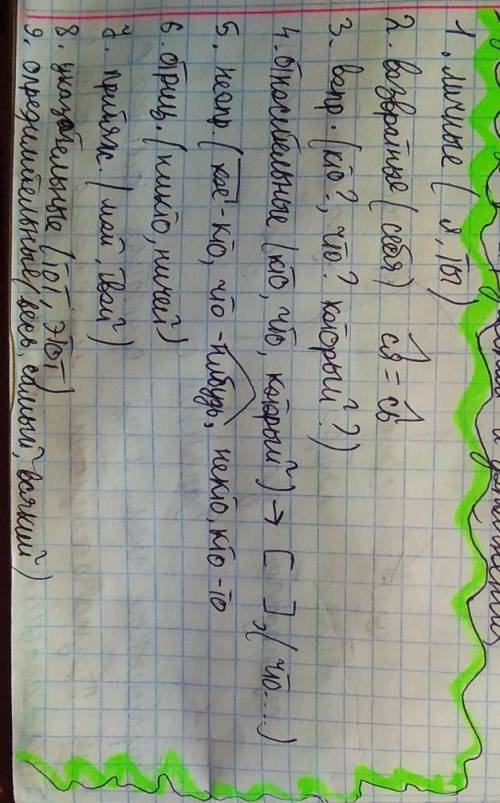 1. личные (я, ты)
2. возвратные (себя) ся = сь
3. вопр. (кто?, что? который?)
4. относительные (кто, что, который) → [ ], (что....)
5. неопр. (кое-кто, что-нибудь, некто, кто-то
6. отриц. (никто, ничей)
7. притяж. (мой, твой)
8. указательные (тот, этот)
9. определительные (весь, самый, всякий)